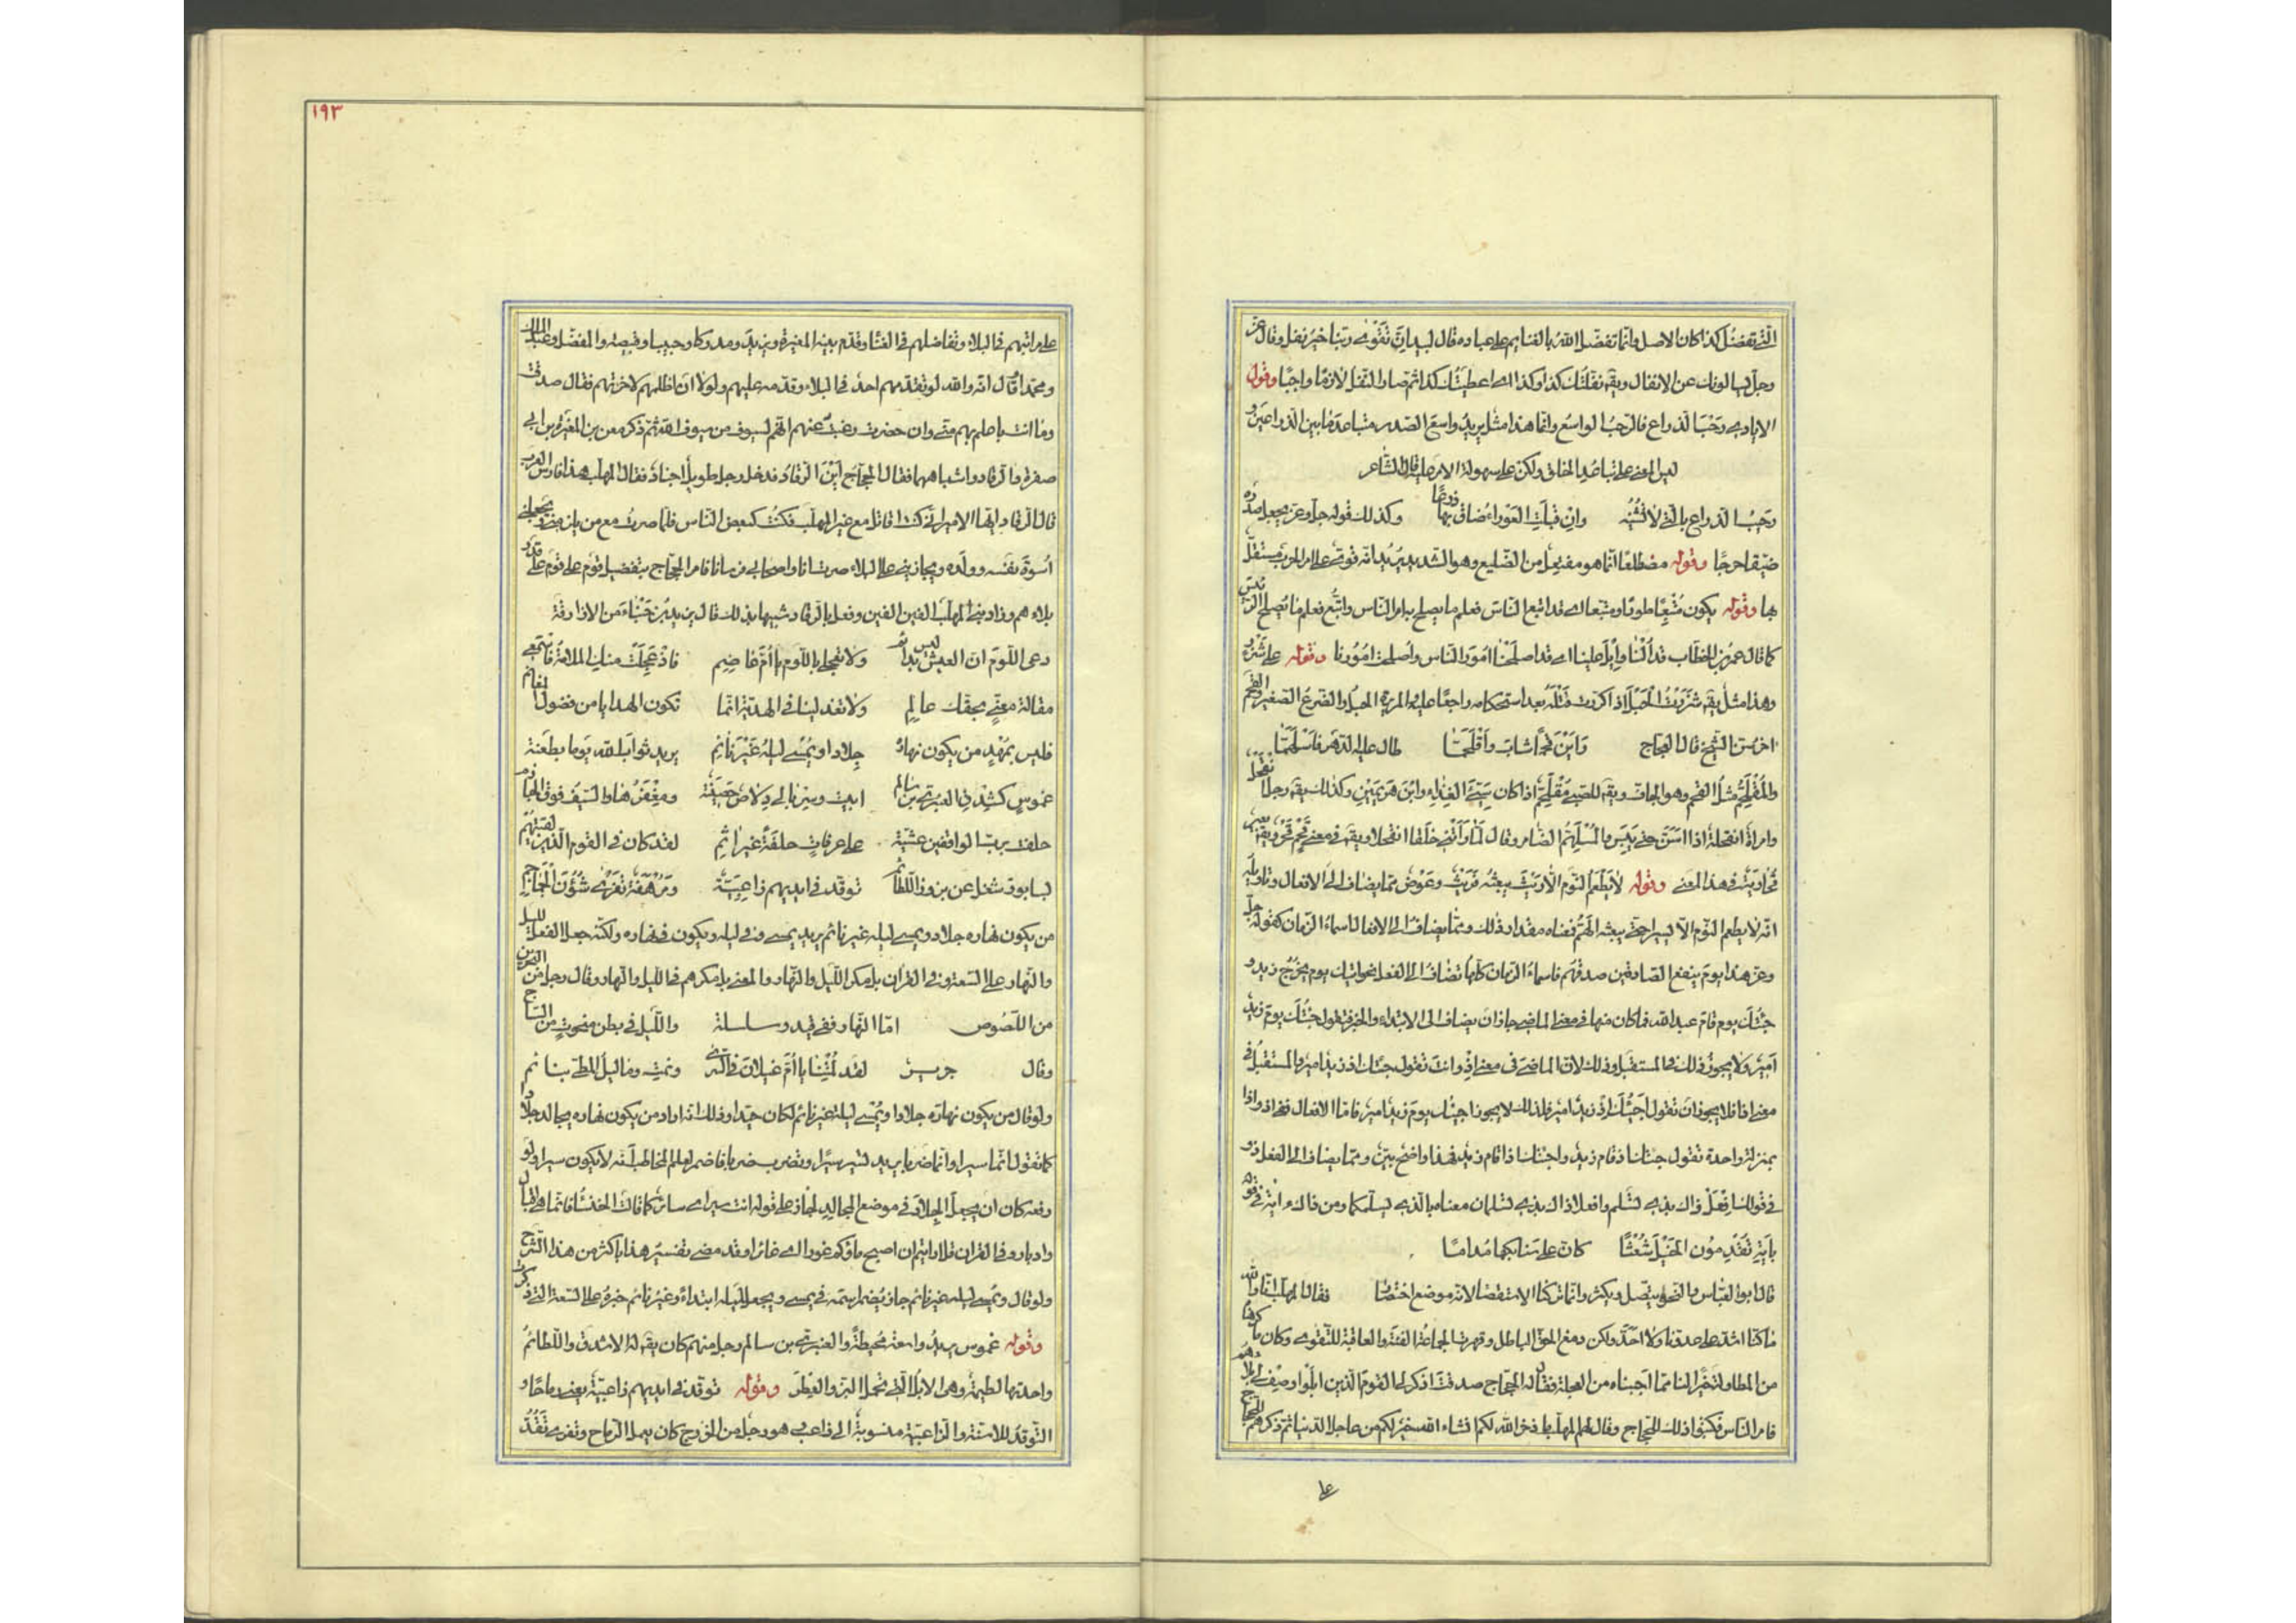 الّتي تفضّل كذا كان الاصل وانّما تفضّل اللّه بالغنايم على عباده قال لبيد اِنّ تَقْوَىٰ ربّنا خَيرُ نفل وقال عزّ
وجلّ يسالونك عن الانفال ويقـ نفّلتُك كذا وكذا اى اعطيتُك كذا ثم صار النّفَل لازمًا واجبًا وقول
الايادى رَحْبَ الذراع فالرّحبُ الواسُع وانّما هذا مثل يريدُ واسعَ الصّدر متباعدَ ما بين الذراعَين و
ليس المعنى على تباعُد الخلق ولكن على سهولة الامر عليه قال الشّاعر
رَحيبُ الذراع بالّتى لا تَشينُه وان قيلتِ العَوراءُ ضاق بها ذرعًا وكذلك قوله جلّ وعزّ يجعل صدره
ضيّقا حرجًا وقوله مضطلعًا انّما هو مفتعِل من الضّليع وهو الشّديد يُريد انّه قوىّ على امر الحرب مستقلّ
بها وقوله يكون مُتّبِعًا طورًا ومتّبَعا اى قد اتبع النّاسَ فعلم ما يصلح به امر النّاس واتُّبع فعلم ما يُصلح الرّئيس
كما قال عمر بن الخطّاب قد اُلْنا واِيلَ علينا اى قد اصلَحْنا امُورَ النّاس واُصلِحت امُورُنا وقوله على شَزْرٍ
وهذا مثل يقـ شَزَرْتُ الحَبْلَ اذا كرّرت فَتْلَه بعد استحكامه راجعًا عليه والمريرة الحبل والضّرعُ الصّغير والقَحْم
اخر سنّ الشّيخ قال العجّاج رَأيْنَ قَحْمًا شابَ واقْلَحَمَّا طال عليه الدّهر فاسْلَهَمَّا
والمُقْلَحِمُّ مثلُ القحم وهو الجافّ ويقـ للصّبىّ مُقْلَحِمّ اذا كان سَيّئَ الغِذاءِ وابْنَ هَرِمَيْنِ وكذلك يقـ رجل انْقَحْل
وامراةٌ انقحلة اذا اسَنّ حتّى يَيبَس والمُسْلَهِمُّ الضّامر وقال لَمّا رَأتْنِى خَلَقًا انقحلا ويقـ فى معنى قَحْمٍ قَحْرٌ ويقـ بعير
قُحاريَةٌ فى هذا المعنى وقوله لا يَطْعَمُ النَّومَ الّا رَيْثَ يبعثُه فرَيْثَ وعَوْضُ ممّا يضاف الى الافعال وتاويله
انّه لا يطعم النّوم الّا يسيرا حتّى يبعثه الهَمُّ فمعناه مقدار ذلك وممّا يضاف الى الافعال اسماءُ الزّمان كقوله جلّ
وعزّ هذا يومُ ينفع الصّادقين صدقُهم فاسماءُ الزّمان كلّها تضاف الى الفعل نحو اتيك يوم يخرُجُ زيد و
جئتُك يوم قام عبد اللّه فما كان منها فى معنى الماضى جاز ان يضاف الى الابتداء والخبر فتقول جئتُك يوم زيد
اميرٌ ولا يجوز ذلك فى المستقبَل وذلك لانّ الماضىَ فى معنى اِذْ وانت تقول جئتك اذ زيد امير والمستقبلُ فى
معنى اذا فلا يجوز ان تقول اَجيئُك اذا زيد امير فلذلك لا يجوز اجيئك يومَ زيد امير فامّا الافعال فى اذ واذا
بمنزلة واحدة تقول جئتك اذ قام زيد واجيئك اذا قام زيد فهذا واضح بيّن وممّا يضاف الى الفعل ذو
فى قولك افعَلْ ذاك بذى تَسْلَم وافعلا ذاك بذى تسلمان معناه بالّذى يسلّمكما ومن ذلك اية فى قوله
بآيَةِ تُقْدِمُون الخَيْلَ شُعْثًا كانّ على سنابكها مُداما
قال ابو العبّاس والنّحو يتّصل ويكثر وانّما تركنا الاستقصا لانّه موضع اختصار فقال المهلّب انّا واللّه
ما كنّا اشدّ على عدوّنا ولا احَدّ ولكن دمغ الحقّ الباطل وقهرت الجماعةُ الفتنةَ والعاقبة للتّقوى وكان ما كرهناه
من المطاولة خيرا لنا ممّا احببناه من العجلة فقال له الحجّاج صدقتَ اذكر لى القوم الّذين ابلَوا وصِفْ لى بلاءهم
فامر النّاس فكتبوا ذلك للحجّاج وقال لهم المهلّب ما ذخر اللّه لكم ان شاء اللّه خير لكم من عاجل الدّنيا ثم ذكرهم للحجّاج
على
١٩٣
على مراتبهم فى البلاء وتفاضلهم فى الغناء وقدّم بنيه المغيرة ويزيد ومدركا وحبيبا وقبيصة والمفضّل وعبد الملك
ومحمّدا وقال انّه واللّه لو تقدّمهم احدٌ فى البلاء لقدّمته عليهم ولولا ان اظلمهم لاخّرتهم فقال صدقت
وما انت باعلم بهم منّى وان حضرت وغبتُ عنهم انّهم لسيوف من سيوف اللّه ثم ذكر معن بن المغيرة بن ابى
صفرة والرّقاد واشباههما فقال الحجّاج اَيْنَ الرّقاد فدخل رجل طويل اجنأ فقال المهلّب هذا فارس العرب
فقال الرّقاد ايّها الامير انّى كنتُ اقاتل مع غير المهلّب فكنتُ كبعض النّاس فلمّا صرتُ مع من يلزمنى الصّبر ويجعلنى
اُسوةَ نفسه وولده ويجازينى على البلاء صرت انا واصحابى فرسانا فامر الحجّاج بتفضيل قوم على قوم على قدر
بلاءهم وزاد بنى المهلّب الفين الفين وفعل بالرّقاد شبيها بذلك قال يزيد بن حَبْناءَ من الازارقة
دعى اللّومَ انّ العيش ليس بدائم ولا تعجلى باللّوم يا اُمَّ عاصم فاذْ عَجِلَتْ منك الملامةُ فاسمعى
مقالةَ معنىٍّ بحقّك عالم ولا تعذلينا فى الهديّة انّما تكون الهدايا من فضول المغانم
فليس بمُهْدٍ من يكون نهارُه جِلادا ويُمْسى ليلُه غَيْرَ نائِم يريد ثوابَ اللّه يوما بطَعنة
غموس كشِدق العنبرىّ بن سالم ابيت وسربالى دِلاصٌ حصينة ومِغْفَرُها والسّيف فوق الحيازم
حلفت بربّ الواقفين عشيّة على عرفاتٍ حلفةً غيرَ اثِم لقد كان فى القوم الّذين لقيتُهم
بسابور شغل عن بزوز اللّطائم توقّد فى ايديهم زاعبيّة ومُرْهَفَة تَفْرِى شُؤُنَ الجماجم
من يكون نهاره جلادا ويمسى ليله غير نائم يريد يمسى فى ليله ويكون فى نهاره ولكنّه جعل الفعل لليل
والنّهار على السّعة وفى القرآن بل مكر اللّيل والنّهار والمعنى بل مكرهم فى الليل والنّهار وقال رجل من البحرين
من اللّصوص امّا النّهار ففى قيد وسلسلة واللّيل فى بطن منحوت من السّاج
وقال جرير لقد لُمْتِنا يا اُمَّ غيلان فى السّرى ونمتِ وما ليل المطىّ بنائم
ولو قال من يكون نهارَه جلادا ويُمْسى ليلَه غير نائم لكان جيّدا وذلك انّه اراد من يكون نهاره يجالد جلادا
كما تقول انّما سيرا وانّما ضربا يريد تسير سيرًا وتضرب ضربا فاضمر لعلم المخاطب انّه لا يكون سيرا ولو
رفعه كان ان يجعل الجِلادَ فى موضع المجالِد لجاز على قوله انت سيرٌ اى سائر كما قالت الخنساء فانّما هى اقبال
وادبار وفى القرآن قل ارايتم ان اصبح ماؤكم غورا اى غائرا وقد مضى تفسيرُ هذا باكثر من هذا الشّرح
ولو قال ويُمسى ليلُه غير نائم جاز يُضمر اسمَه فى يمسى ويجعل ليله ابتداءً وغيرُ نائم خبره على السّعة الّتى ذكرت
وقوله غموس يريدُ واسعة محيطةً والعنبرىّ بن سالم رجل منهم كان يقـ له الاشدق واللّطائمُ
واحدتها لطيمة وهى الابلُ الّتى تحمل البزّ والعِطرَ وقوله توقّد فى ايديهم زاعبيّةٌ يعنى رماحًا و
التّوقدُ للاسنّة والزّاعبيّة منسوبةٌ الى زاعب وهو رجل من الخزرج كان يعمل الرّماح وتفرى تقُدُّ